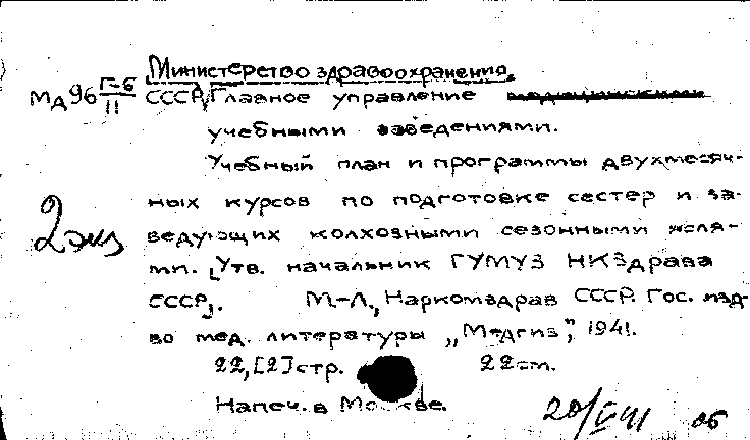 Министерство здравоохранения.
МД96 Г-6/11 СССР, Главное управление медицинскими
учебными заведениями.
Учебный план и программы двухмесяч-
ных курсов по подготовке сестер и за-
2 экз ведующих колхозными сезонными ясля-
ми. [Утв. начальник ГУМУЗ НКЗдрава
СССР]. М.-Л., Наркомздрав СССР. Гос. изд-
во мед. литературы „Медгиз”, 1941.
22,[2]стр. 22см.
Напеч. в Москве.
об